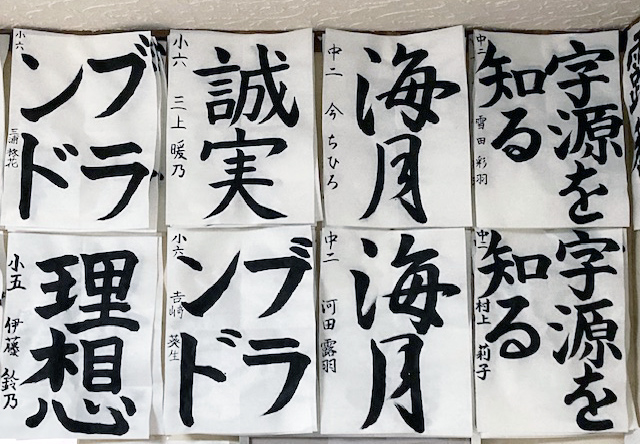 ブラ
ンド
小六 三浦 柊花
誠実
小六 三上 暖乃
海月
中二 今 ちひろ
字源を
知る
中二 雪田 彩羽
理想
小五 伊藤 鈴乃
ブラ
ンド
小六 吉崎 葵生
海月
中二 河田 露羽
字源を
知る
中二 村上 莉子